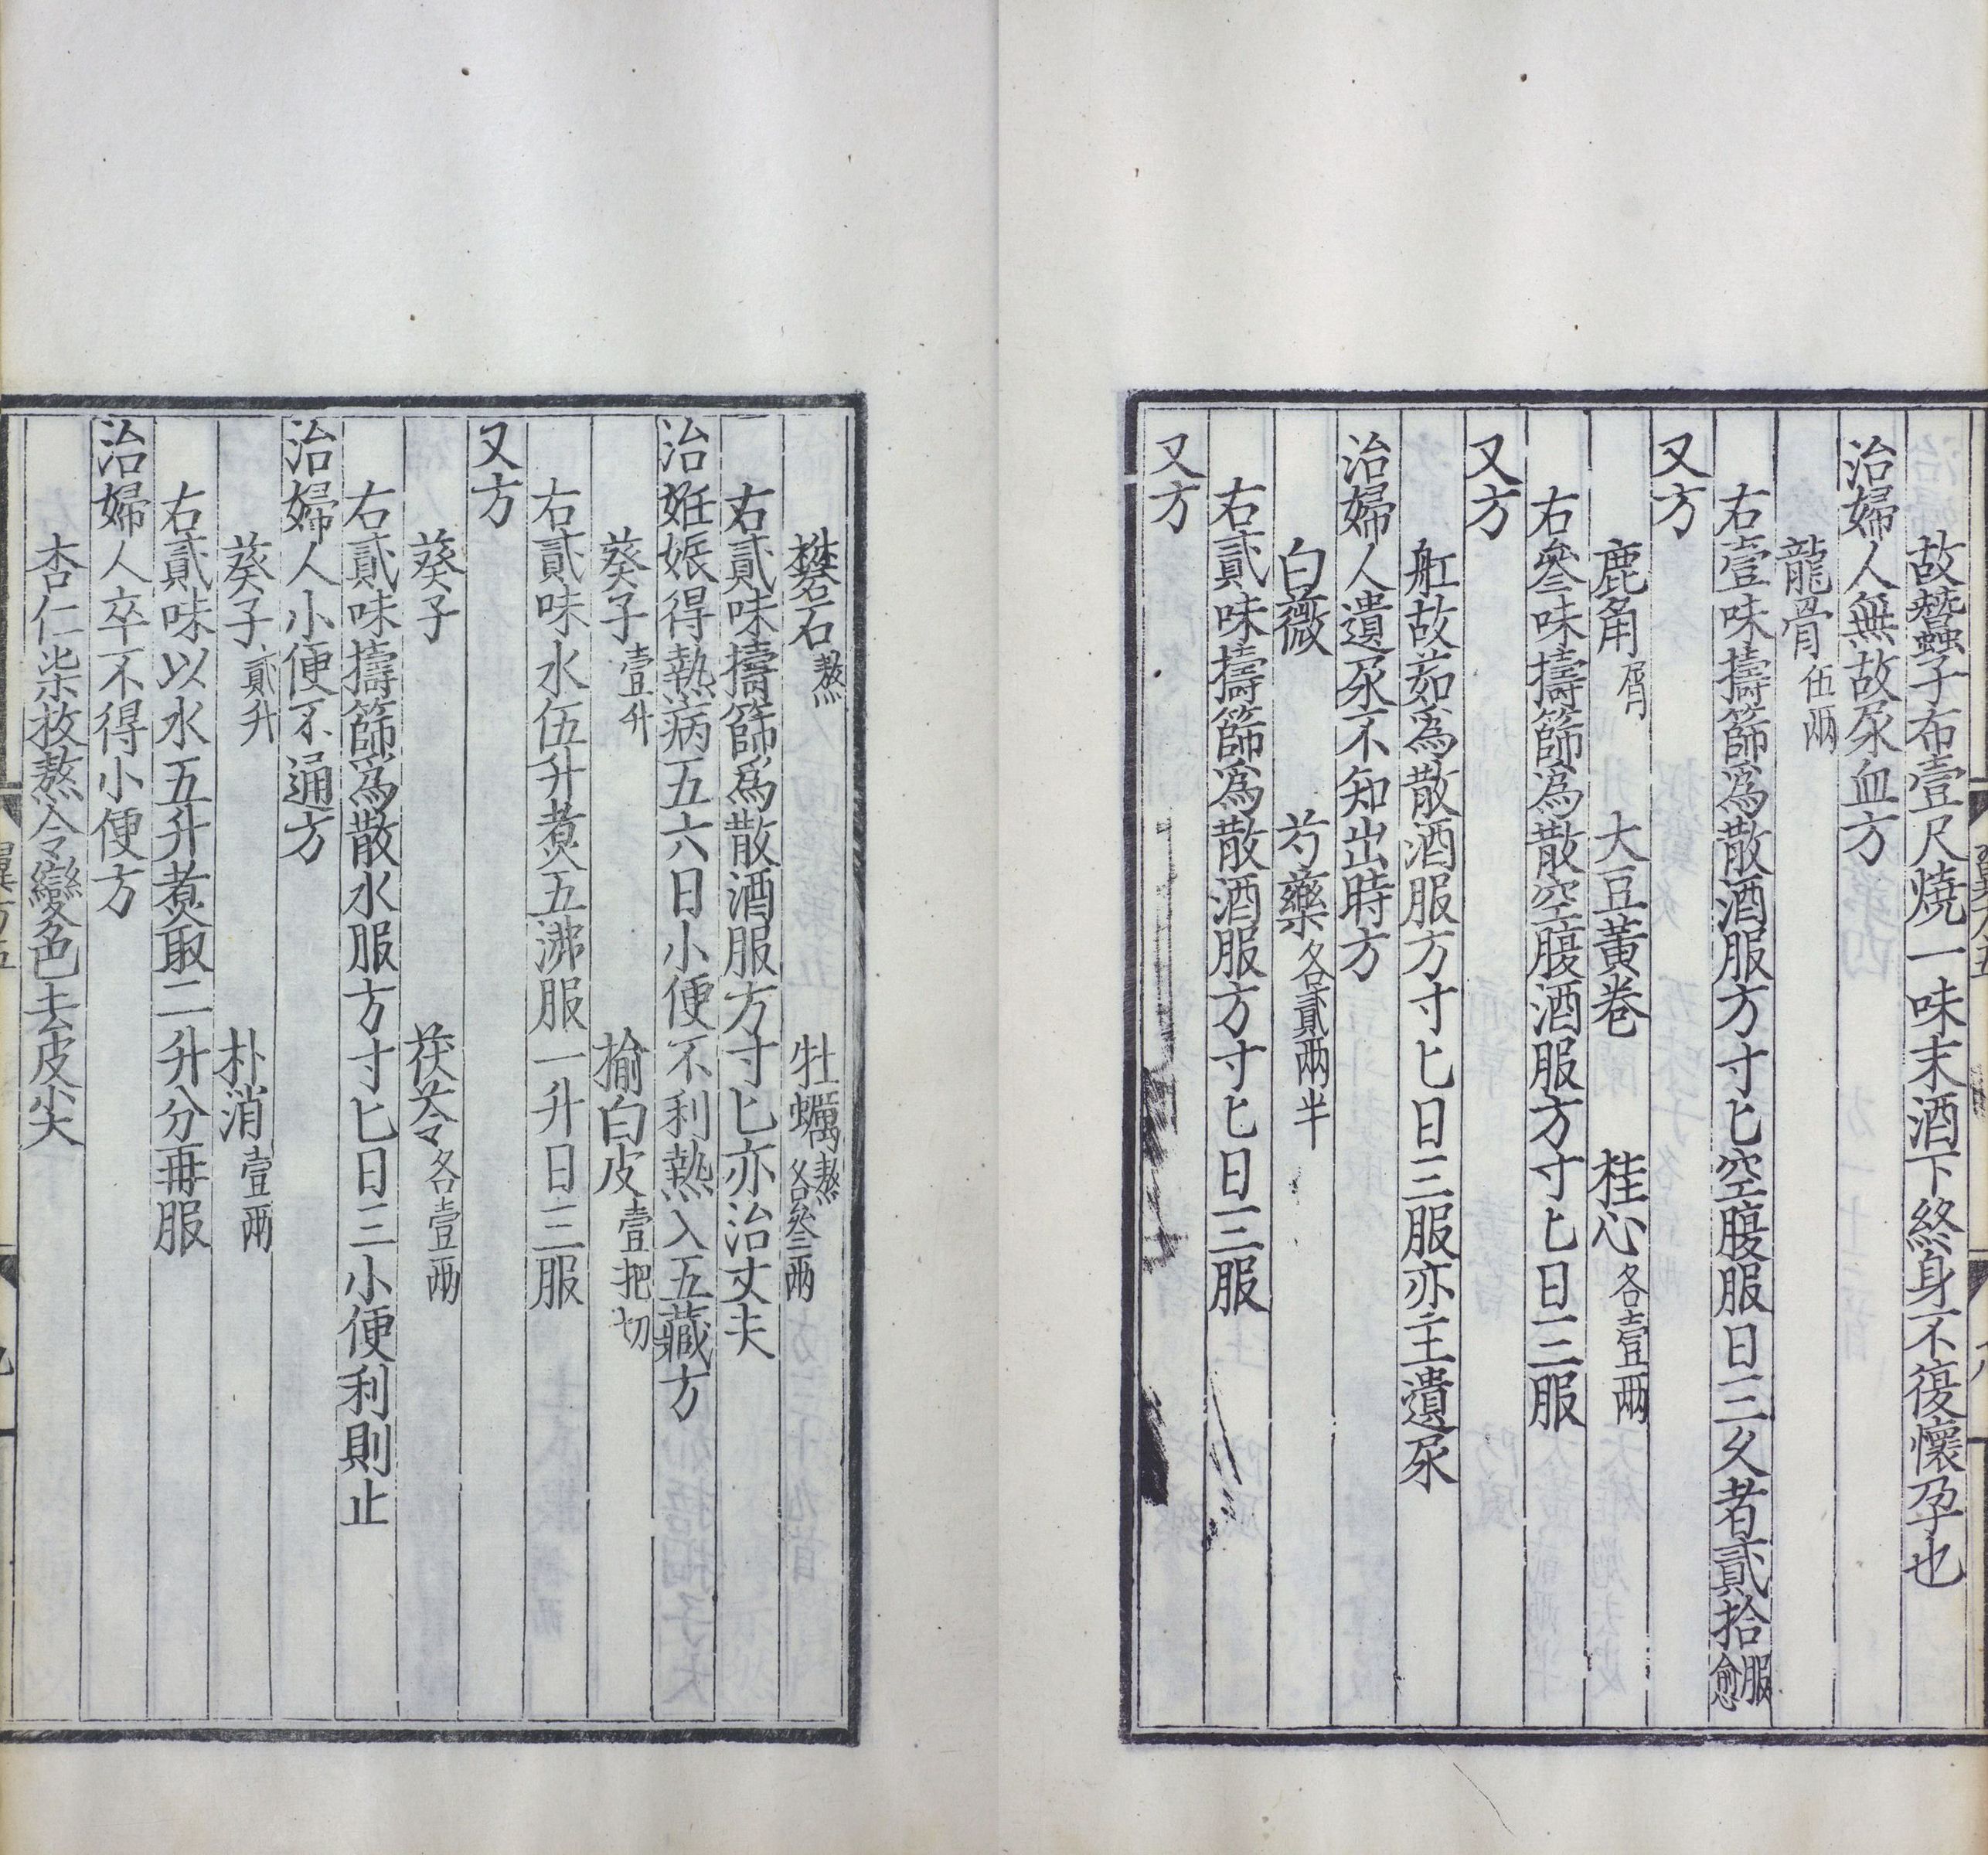 故蠶子布壹尺燒一味末酒下終身不復懷孕也
治婦人無故尿血方
龍骨伍兩
右壹味擣篩爲散酒服方寸匕空腹服日三久者貳拾服愈
又方
鹿角屑 大豆黃卷 桂心各壹兩
右叄味擣篩爲散空腹酒服方寸匕日三服
又方
舡故茹爲散酒服方寸匕日三服亦主遺尿
治婦人遺尿不知出時方
白薇 芍藥各貳兩半
右貳味擣篩爲散酒服方寸匕日三服
又方
礬石熬 牡蠣熬各叄兩
右貳味擣篩爲散酒服方寸匕亦治丈夫
治妊娠得熱病五六日小便不利熱入五藏方
葵子壹升 榆白皮壹把切
右貳味水伍升煑五沸服一升日三服
又方
葵子 茯苓各壹兩
右貳味擣篩爲散水服方寸匕日三小便利則止
治婦人小便不通方
葵子貳升 朴消壹兩
右貳味以水五升煑取二升分再服
治婦人卒不得小便方
杏仁柒枚熬令變色去皮尖